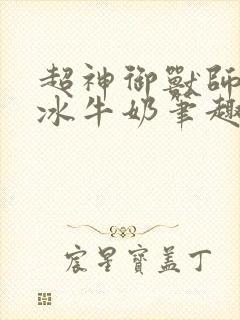 超神御獸師
冰牛奶筆趣
宸星寶蓋丁